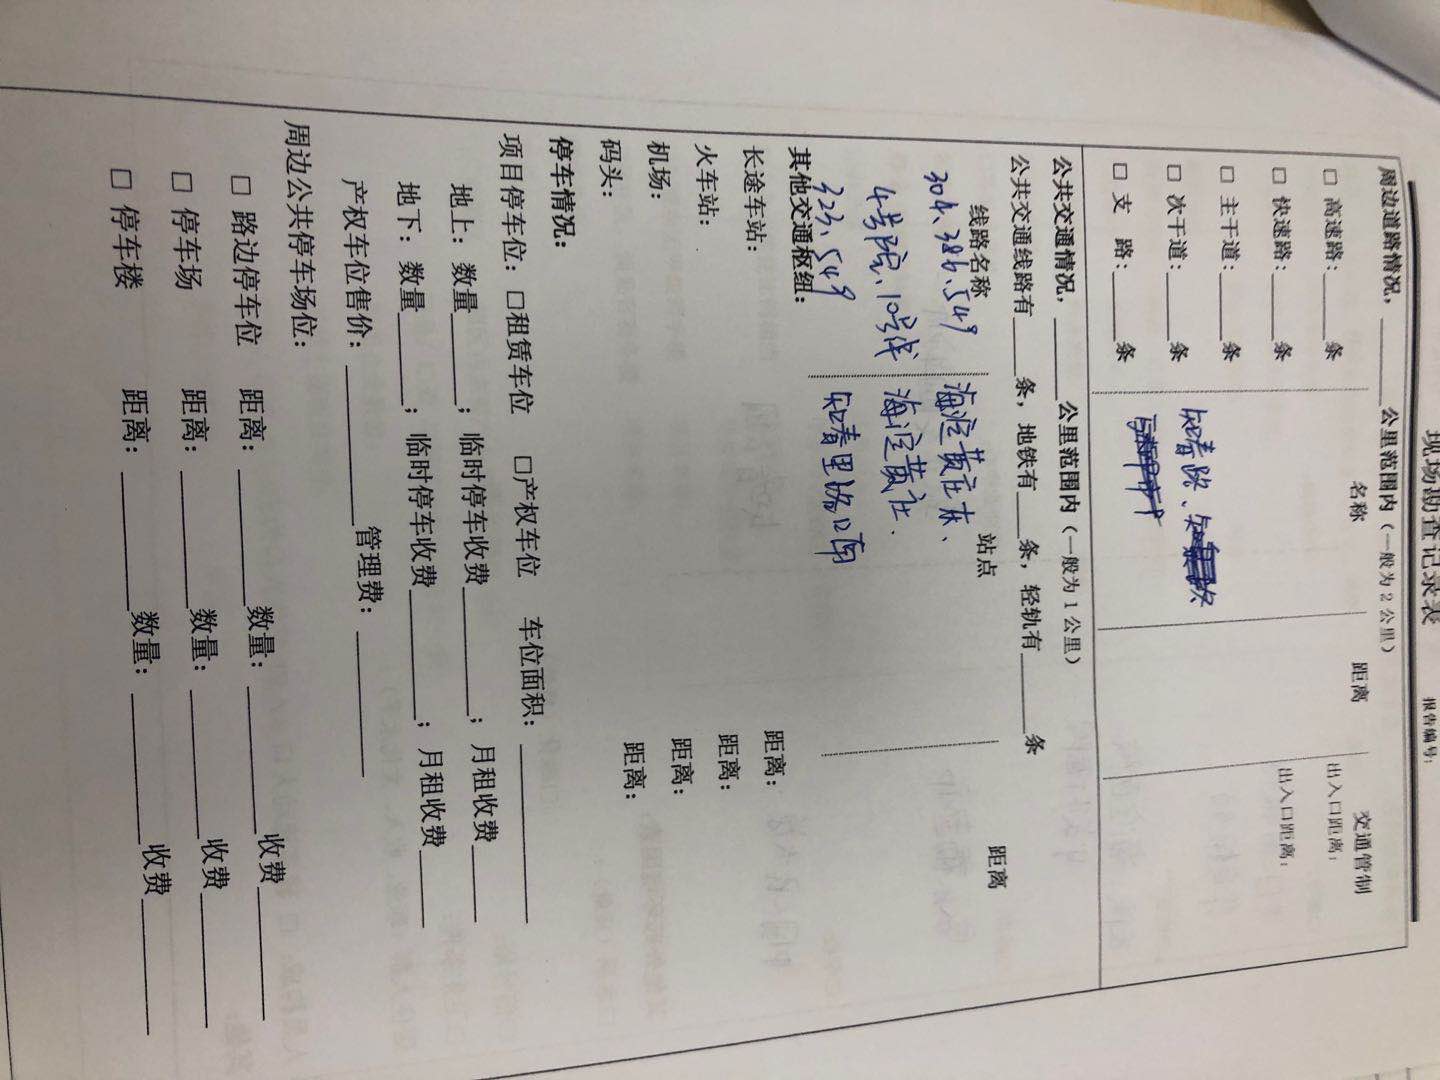 现场勘查记录表
报告编号:
周边道路情况，______公里范围内（一般为2公里）
名称 距离 交通管制
□ 高速路：_____条 出入口距离：
□ 快速路：_____条 出入口距离：
□ 主干道：_____条
□ 次干道：_____条 知春路、
□ 支 路：_____条
公共交通情况，______公里范围内（一般为1公里）
公共交通线路有_____条，地铁有___条，轻轨有_____条
线路名称 站点 距离
304、386、549 海淀黄庄东、
4号院、10号线 海淀黄庄、
323、549 知春里路口南
其他交通枢纽：
长途车站： 距离：
火车站： 距离：
机场： 距离：
码头： 距离：
停车情况：
项目停车位：□租赁车位 □产权车位 车位面积：____________
地上：数量______；临时停车收费________；月租收费_____
地下：数量______；临时停车收费________；月租收费_____
产权车位售价：__________管理费：_________
周边公共停车场位：
□ 路边停车位 距离：_________数量：_________收费_________
□ 停车场 距离：_________数量：_________收费_________
□ 停车楼 距离：_________数量：_________收费_________